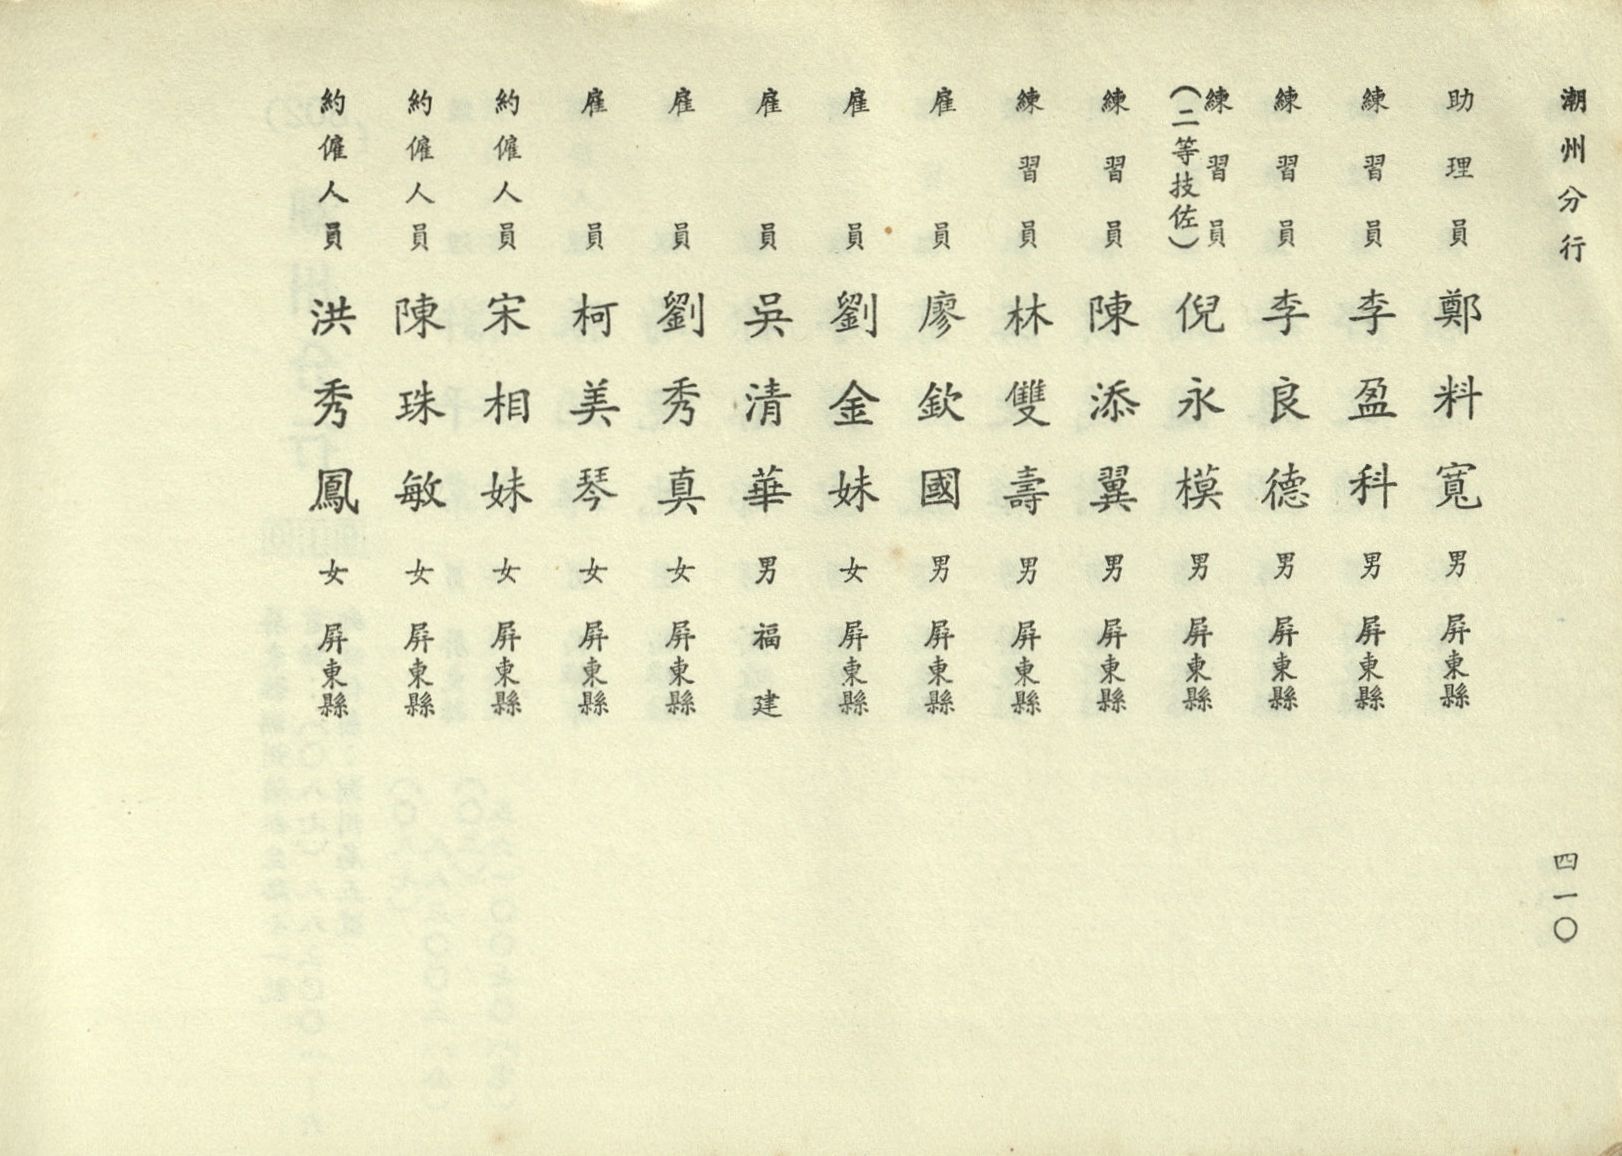 潮州分行 四一〇
助理員 鄭料寬 男 屏東縣
練習員 李盈科 男 屏東縣
練習員 李良德 男 屏東縣
練習員(二等技佐) 倪永模 男 屏東縣
練習員 陳添翼 男 屏東縣
練習員 林雙壽 男 屏東縣
雇員 廖欽國 男 屏東縣
雇員 劉金妹 女 屏東縣
雇員 吳清華 男 福建
雇員 劉秀真 女 屏東縣
雇員 柯美琴 女 屏東縣
約僱人員 宋相妹 女 屏東縣
約僱人員 陳珠敏 女 屏東縣
約僱人員 洪秀鳳 女 屏東縣